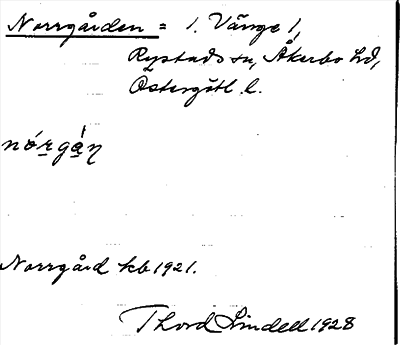 Norrgården = 1. Vänge 1,
Rystads sn, Åkerbo hd,
Östergötl. l.
nórgán
Norrgård kb 1921.
Thord Lindell 1928